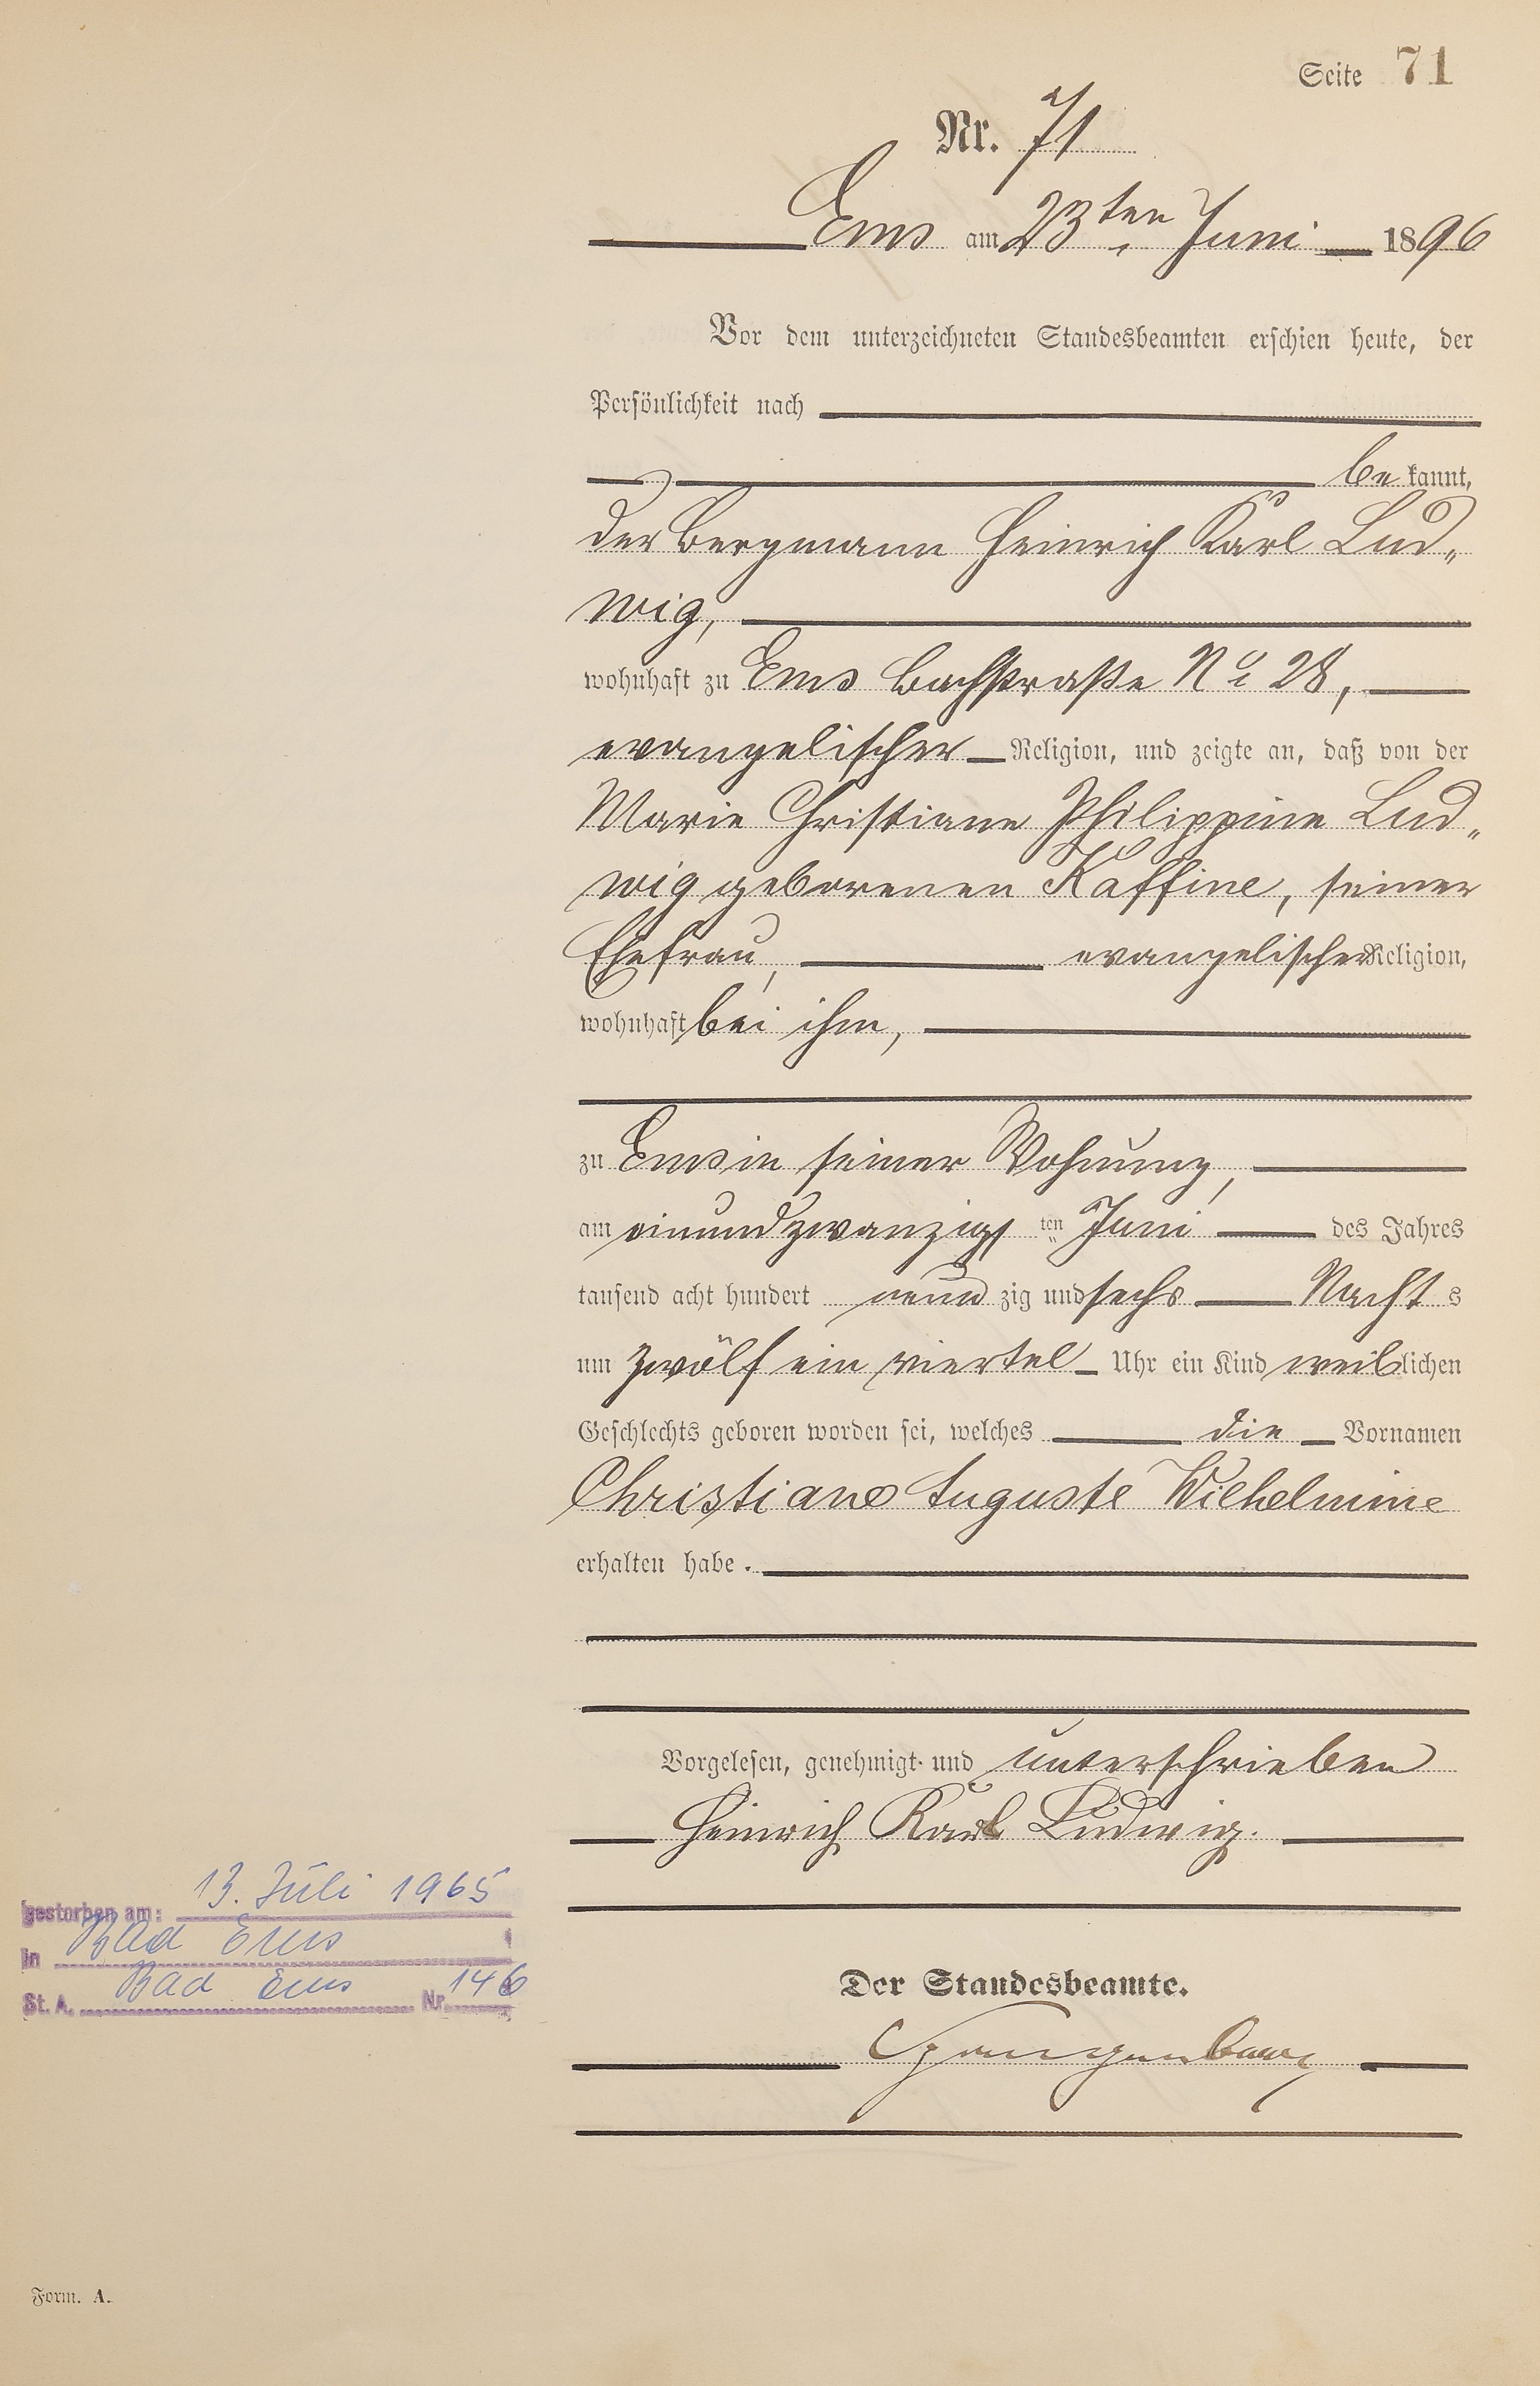 Seite 71
Nr. 71
Ems am 23ten Juni 1896
Vor dem unterzeichneten Standesbeamten erschien heute, der
Persönlichkeit nach
bekannt,
der Bergmann Heinrich Karl Lud„
wig,
wohnhaft zu Ems Bachstraße No 28,
evangelischer Religion, und zeigte an, daß von der
Marie Christiane Philippine Lud„
wig geborenen Kaffine, seiner
Ehefrau, evangelischer Religion,
wohnhaft bei ihm,
zu Ems in seiner Wohnung,
am einundzwanzigsten Juni des Jahres
tausend acht hundert neunzig und sechs Nachts
um zwölf ein viertel Uhr ein Kind weiblichen
Geschlechts geboren worden sei, welches die Vornamen
Christiane Auguste Wilhelmine
erhalten habe.
Vorgelesen, genehmigt und unterschrieben
Heinrich Karl Ludwig.
gestorben am: 13. Juli 1965
in Bad Ems
St. A. Bad Ems Nr. 146
Der Standesbeamte.
Form. A.